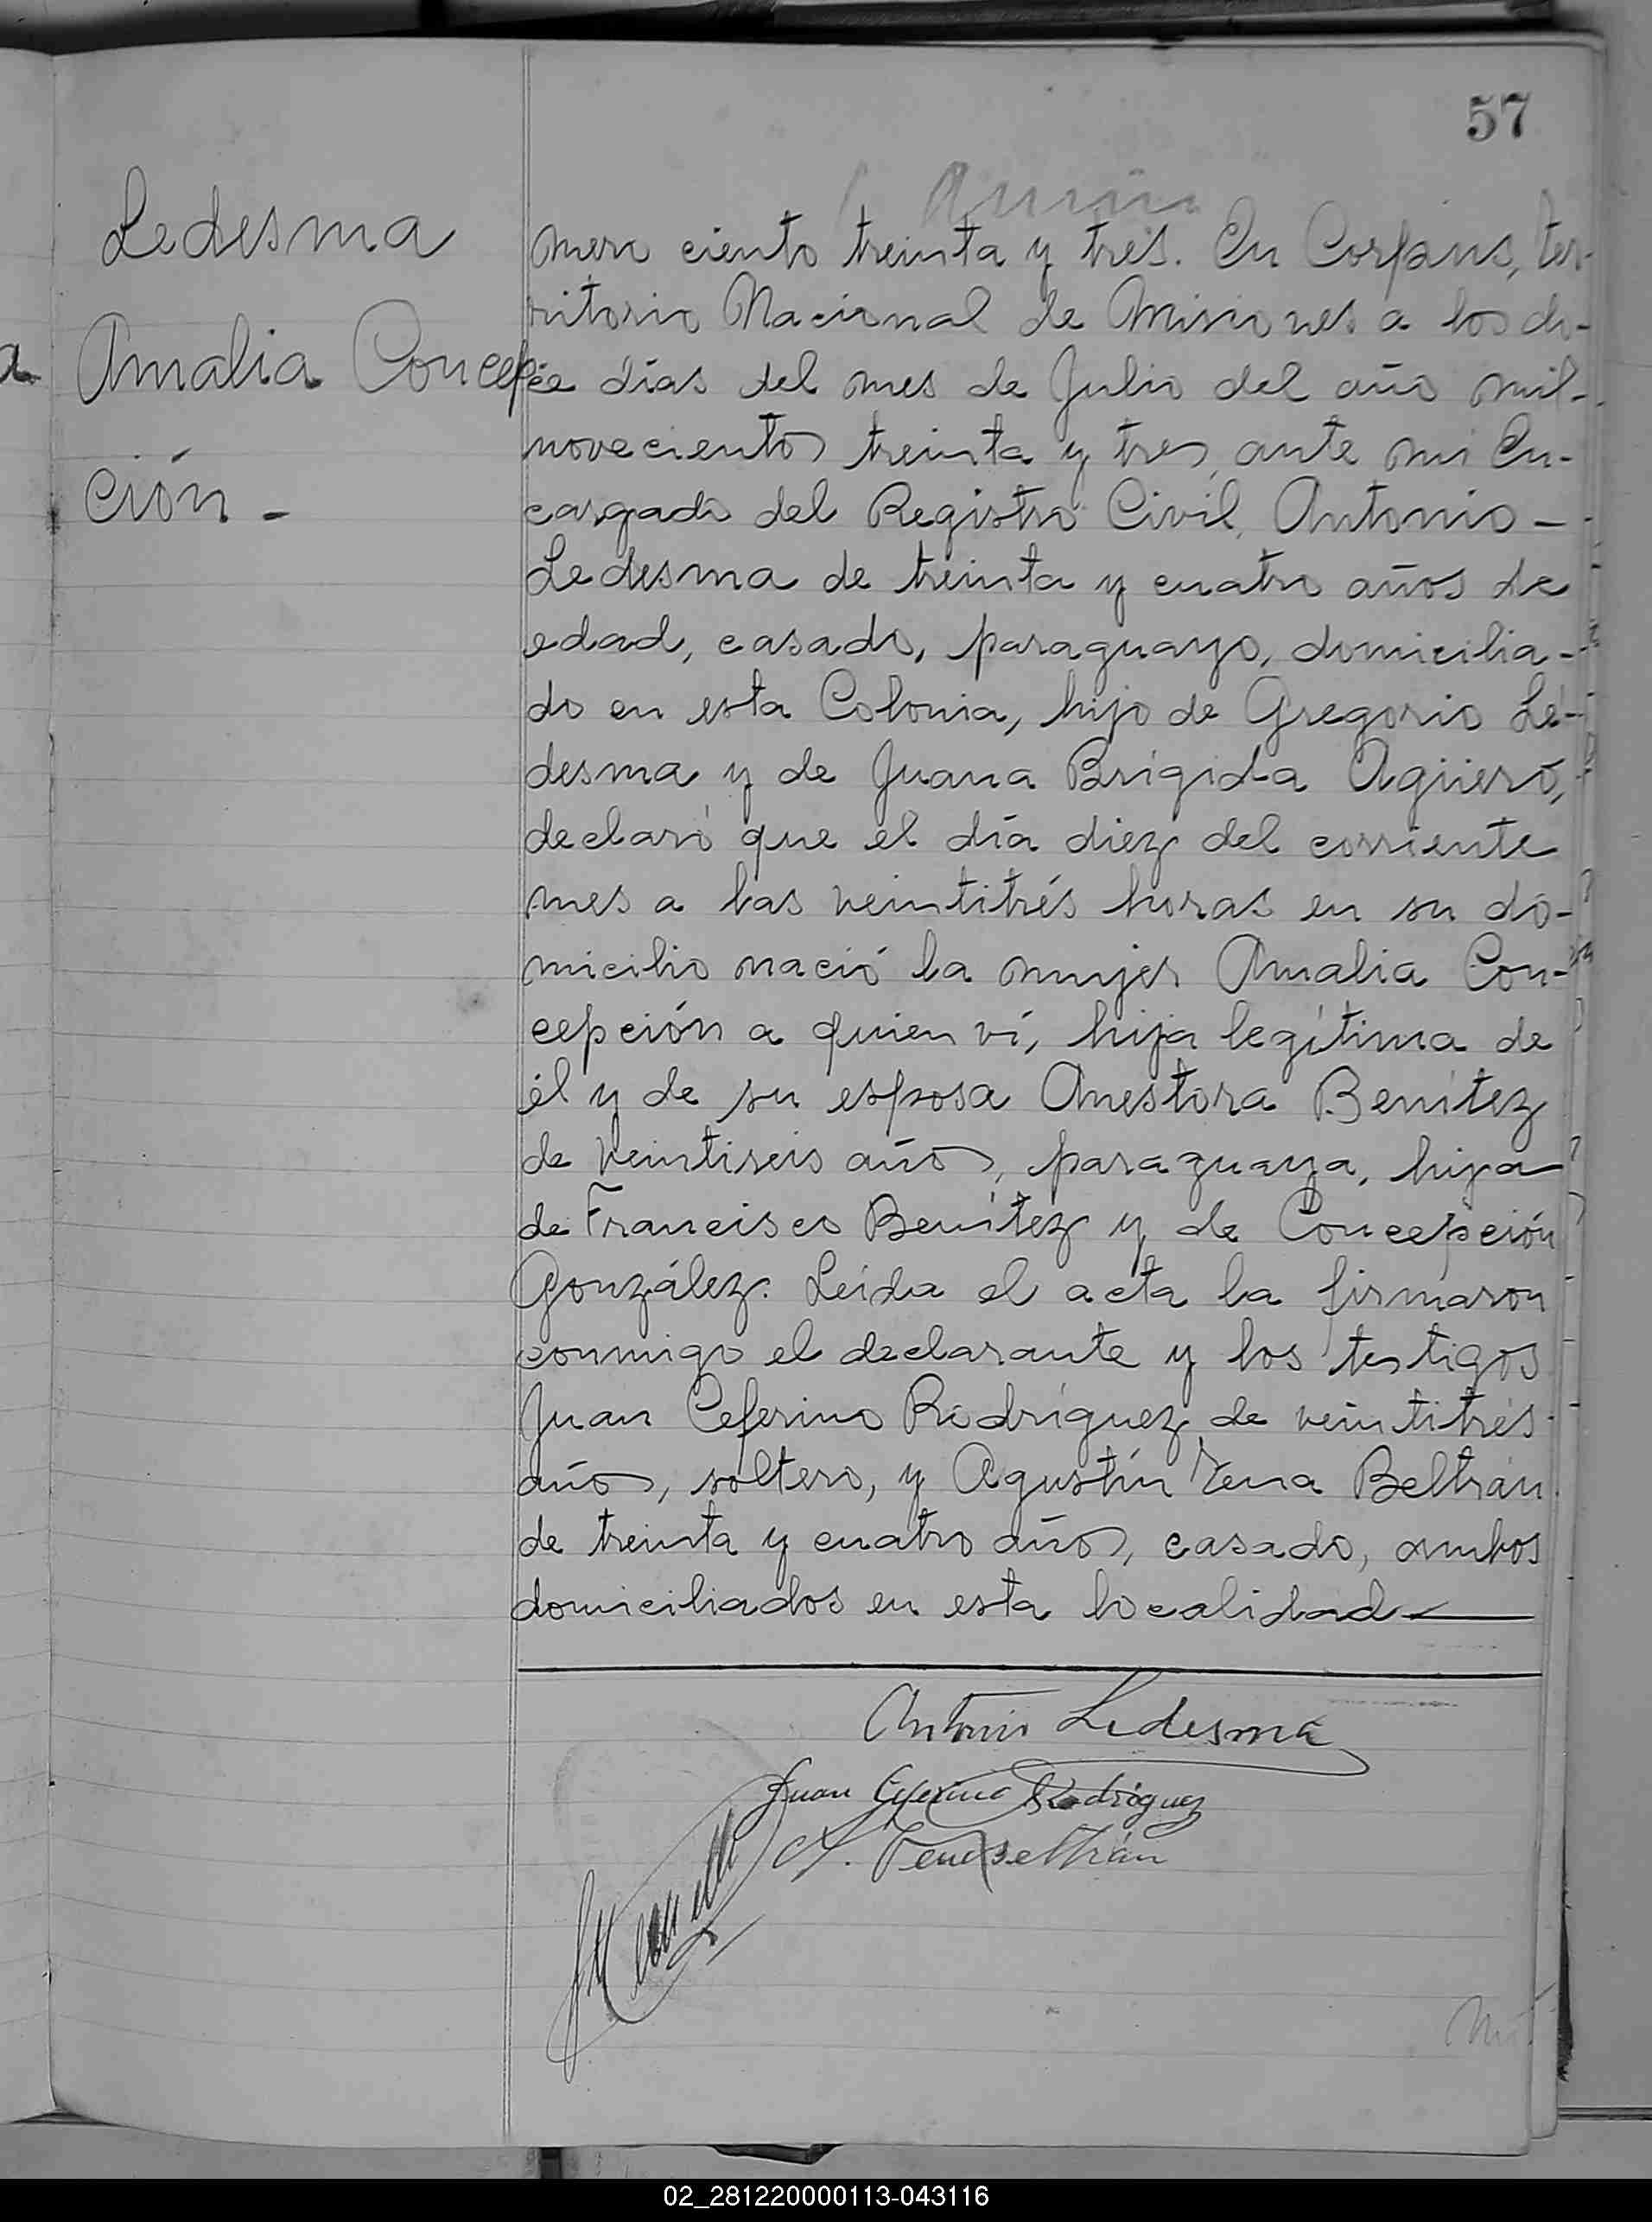 57
Ledesma
Amalia Concep
ción -
mero ciento treinta y tres. En Corpus, ter-
ritorio Nacional de Misiones a los do-
ce días del mes de Julio del año mil-
novecientos treinta y tres, ante mi En-
cargado del Registro Civil, Antonio -
Ledesma de treinta y cuatro años de
edad, casado, paraguayo, domicilia-
do en esta Colonia, hijo de Gregorio Le-
desma y de Juana Brígida Agüero,
declaró que el día diez del corriente
mes a las veintitrés horas en su do-
micilio nació la mujer Amalia Con-
cepción a quien ví, hija legítima de
él y de su esposa Anestora Benítez
de veintiseis años, paraguaya, hija
de Francisco Benítez y de Concepción
González. Leída el acta la firmaron
conmigo el declarante y los testigos
Juan Ceferino Rodríguez de veintitrés
años, soltero, y Agustín Tena Beltrán
de treinta y cuatro años, casado, ambos
domiciliados en esta localidad
Antonio Ledesma
Juan Ceferino Rodríguez
A. Tena Beltrán
02_281220000113-043116